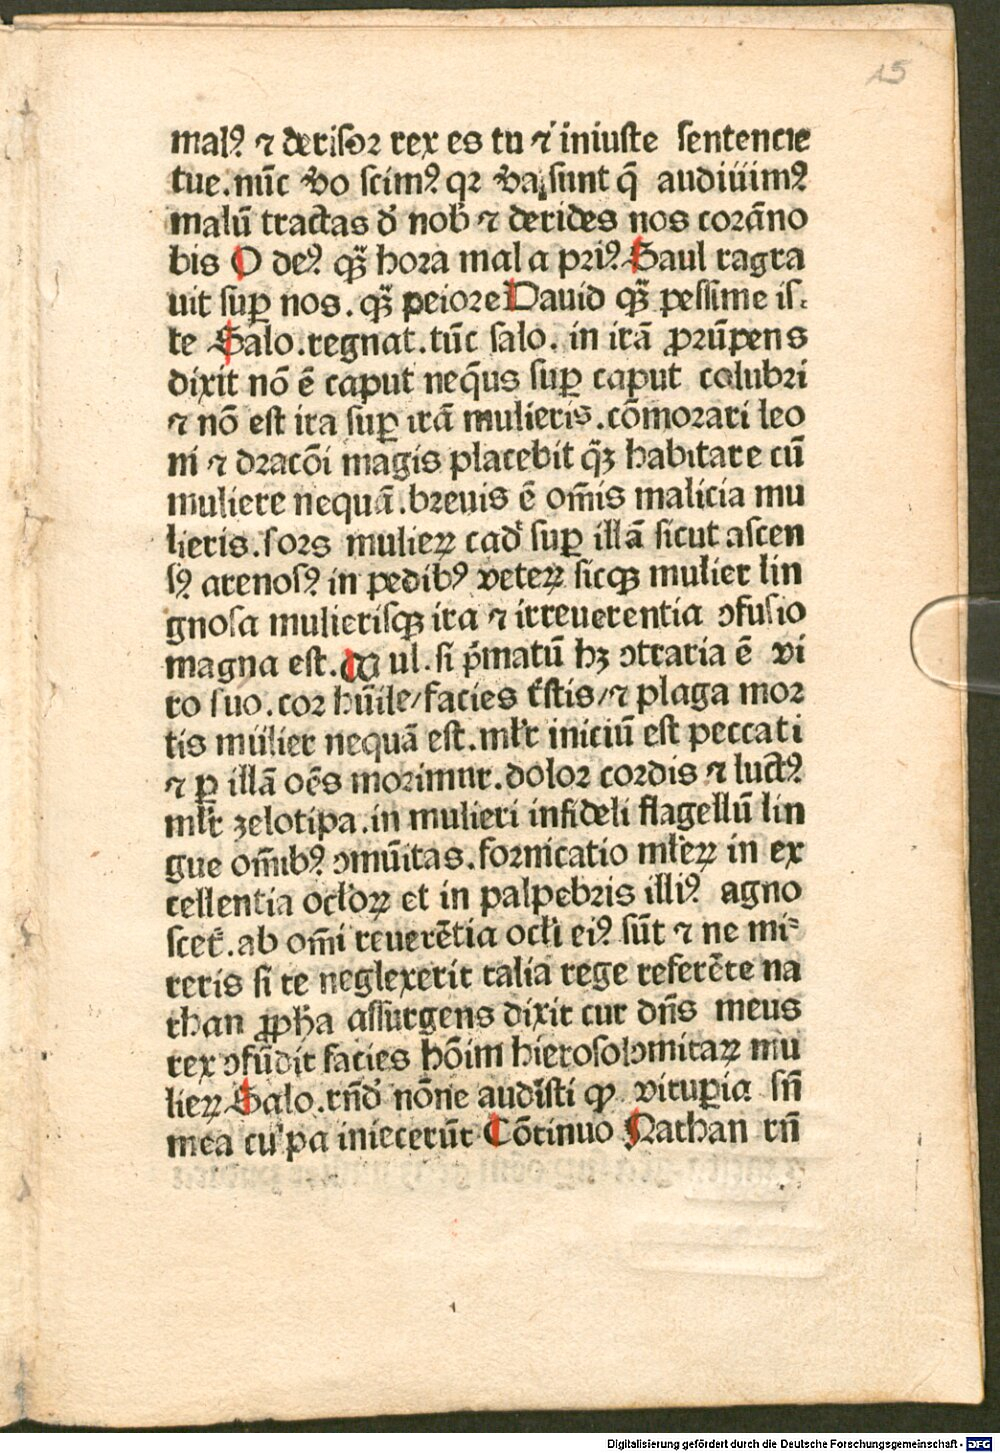 15
malꝰ ⁊ deriſoꝛ rex es tu ⁊ iniuſte ſentencie
tue.nūc v̾o ſcimꝰ qꝛ v̾a ſunt q̄ audiuimꝰ
malū tractas ď nob̾ ⁊ derides nos corāno
bis O deꝰ qȝ̄ hoꝛa mala pꝛiꝰ Saul ragra
uit ſuꝑ nos.qȝ̄ peiore Dauid qȝ̄ peſſime iſ⸗
te Salo.regnat.tūc ſalo.in irā ꝓꝛūpens
dixit nō ē caput neq̄us ſuꝑ caput colubꝛi
⁊ nō eſt ira ſuꝑ irā mulieris.cōmoꝛari leo
ni ⁊ dꝛacōi magis placebit qȝ̄ habitare cū
muliere nequā.bꝛeuis ē om̄is malicia mu
lieris.ſoꝛs mulieꝝ cad̾ ſuꝑ illā ſicut aſcen
ſꝰ arenoſꝰ in pedibꝰ veteꝝ ſicqꝫ mulier lin
gnoſa mulieriſqꝫ ira ⁊ irreuerentia ↄfuſio
magna eſt.Mul.ſi p̄matū hꝫ ↄtraria ē vi
ro ſuo.coꝛ hūile/facies tſ̄tis/⁊ plaga moꝛ
tis mulier nequā eſt.ml̾r iniciū eſt peccati
⁊ ꝑ illā oēs moꝛimur.doloꝛ coꝛdis ⁊ luctꝰ
ml̾r zelotipa.in mulieri infideli flagellū lin
gue om̄ibꝰ ↄmūitas.foꝛnicatio ml̾eꝝ in ex
cellentia ocl̾oꝝ et in palpebꝛis illiꝰ agno
ſcet̾.ab om̄i reuerētia ocl̾i eiꝰ ſūt ⁊ ne mi⸗
reris ſi te neglexerit talia rege referēte na
than ꝓph̄a aſſurgens dixit cur dn̄s meus
rex ↄfūdit facies hōim hieroſolomitaꝝ mu
lieꝝ Salo.rn̄d̾ nōne audiſti ꝙ vituꝑia ſn̄
mea culpa iniecerūt Cōtinuo Nathan rn̄
Digitalisierung gefördert durch die Deutsche Forschungsgemeinschaft - DFG